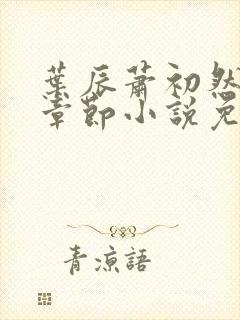 葉辰蕭初然
章節小說免
青涼語